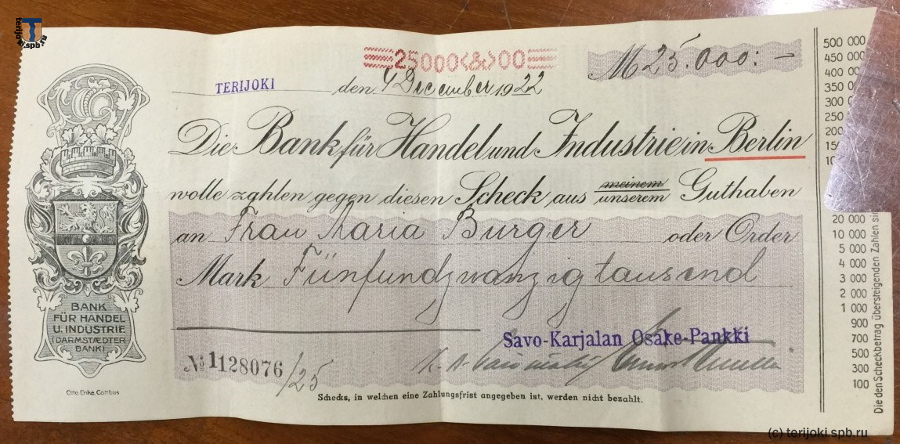 T
terijoki
.spb.ru
25000<&>00
M 25.000:-
TERIJOKI
den 9 December 1922
Die Bank für Handel und Industrie in Berlin
wolle zahlen gegen diesen Scheck aus meinem unserem Guthaben
an Frau Maria Burger oder Order
Mark Fünfundzwanzigtausend
Savo-Karjalan Osake-Pankki
No 1128076/25
Schecks, in welchen eine Zahlungsfrist angegeben ist, werden nicht bezahlt.
BANK
FÜR HANDEL
U. INDUSTRIE
(DARMSTÆDTER
BANK)
Otto Enke, Cottbus
500 000
450 000
400 000
350 000
300 00
250
200
150
10
20 000
10 000
5 000
4 000
3 000
2 000
1 000
900
700
500
300
100
Die den Scheckbetrag übersteigenden Zahlen sin
(c) terijoki.spb.ru